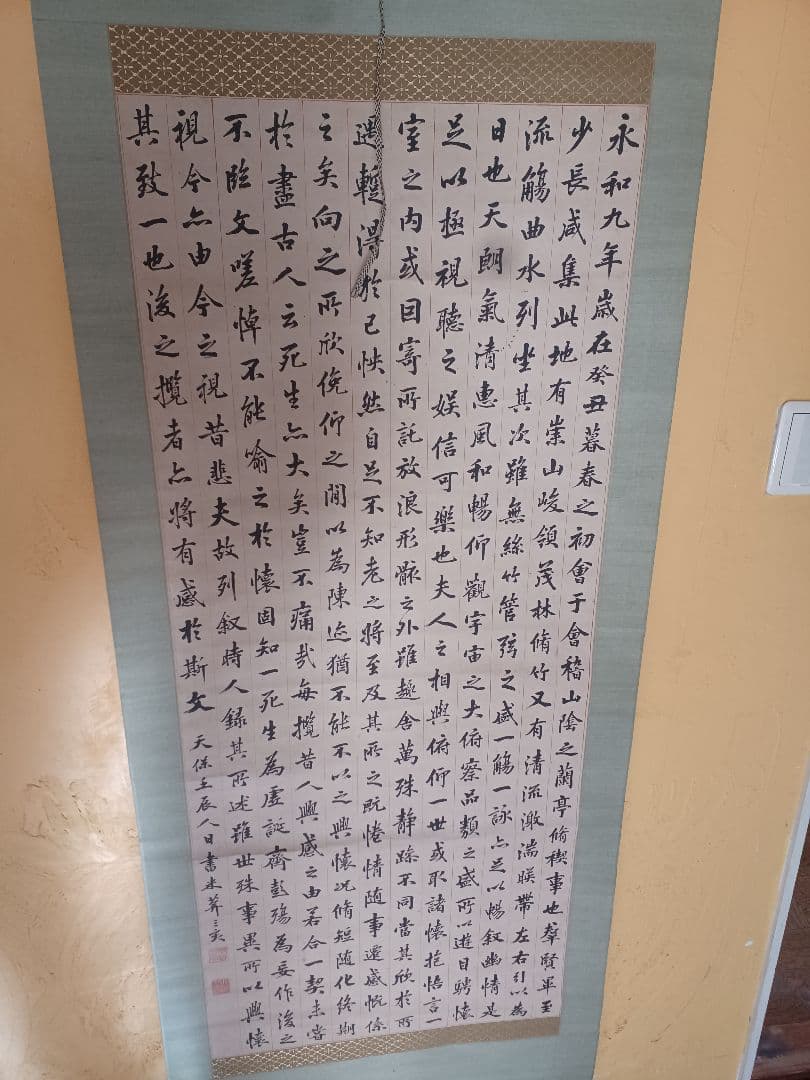 永和九年歲在癸丑暮春之初會于會稽山陰之蘭亭脩稧事也羣賢畢至
少長咸集此地有崇山峻領茂林脩竹又有清流激湍暎帶左右引以為
流觴曲水列坐其次雖無絲竹管弦之盛一觴一詠亦足以暢叙幽情是
日也天朗氣清惠風和暢仰觀宇宙之大俯察品類之盛所以遊目騁懷
足以極視聽之娛信可樂也夫人之相與俯仰一世或取諸懷抱悟言一
室之内或因寄所託放浪形骸之外雖趣舍萬殊静躁不同當其欣於所
遇蹔得於己怏然自足不知老之將至及其所之既惓情随事遷感慨係
之矣向之所欣俛仰之閒以為陳迹猶不能不以之興懷况脩短随化終期
於盡古人云死生亦大矣豈不痛哉每攬昔人興感之由若合一契未嘗
不臨文嗟悼不能喻之於懷固知一死生為虛誕齊彭殤為妄作後之
視今亦由今之視昔悲夫故列叙時人錄其所述雖世殊事異所以興懷
其致一也後之攬者亦將有感於斯文
天保壬辰人日書米葊三亥